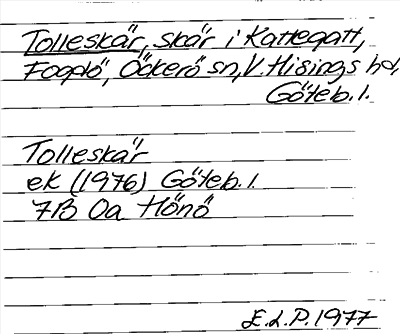 Tolleskär, skär i Kattegatt,
Fogdö, Öckerö sn, V. Hisings hd,
Göteb. l.
Tolleskär
ek (1976) Göteb. l.
7B 0a Hönö
E.L.P. 1977